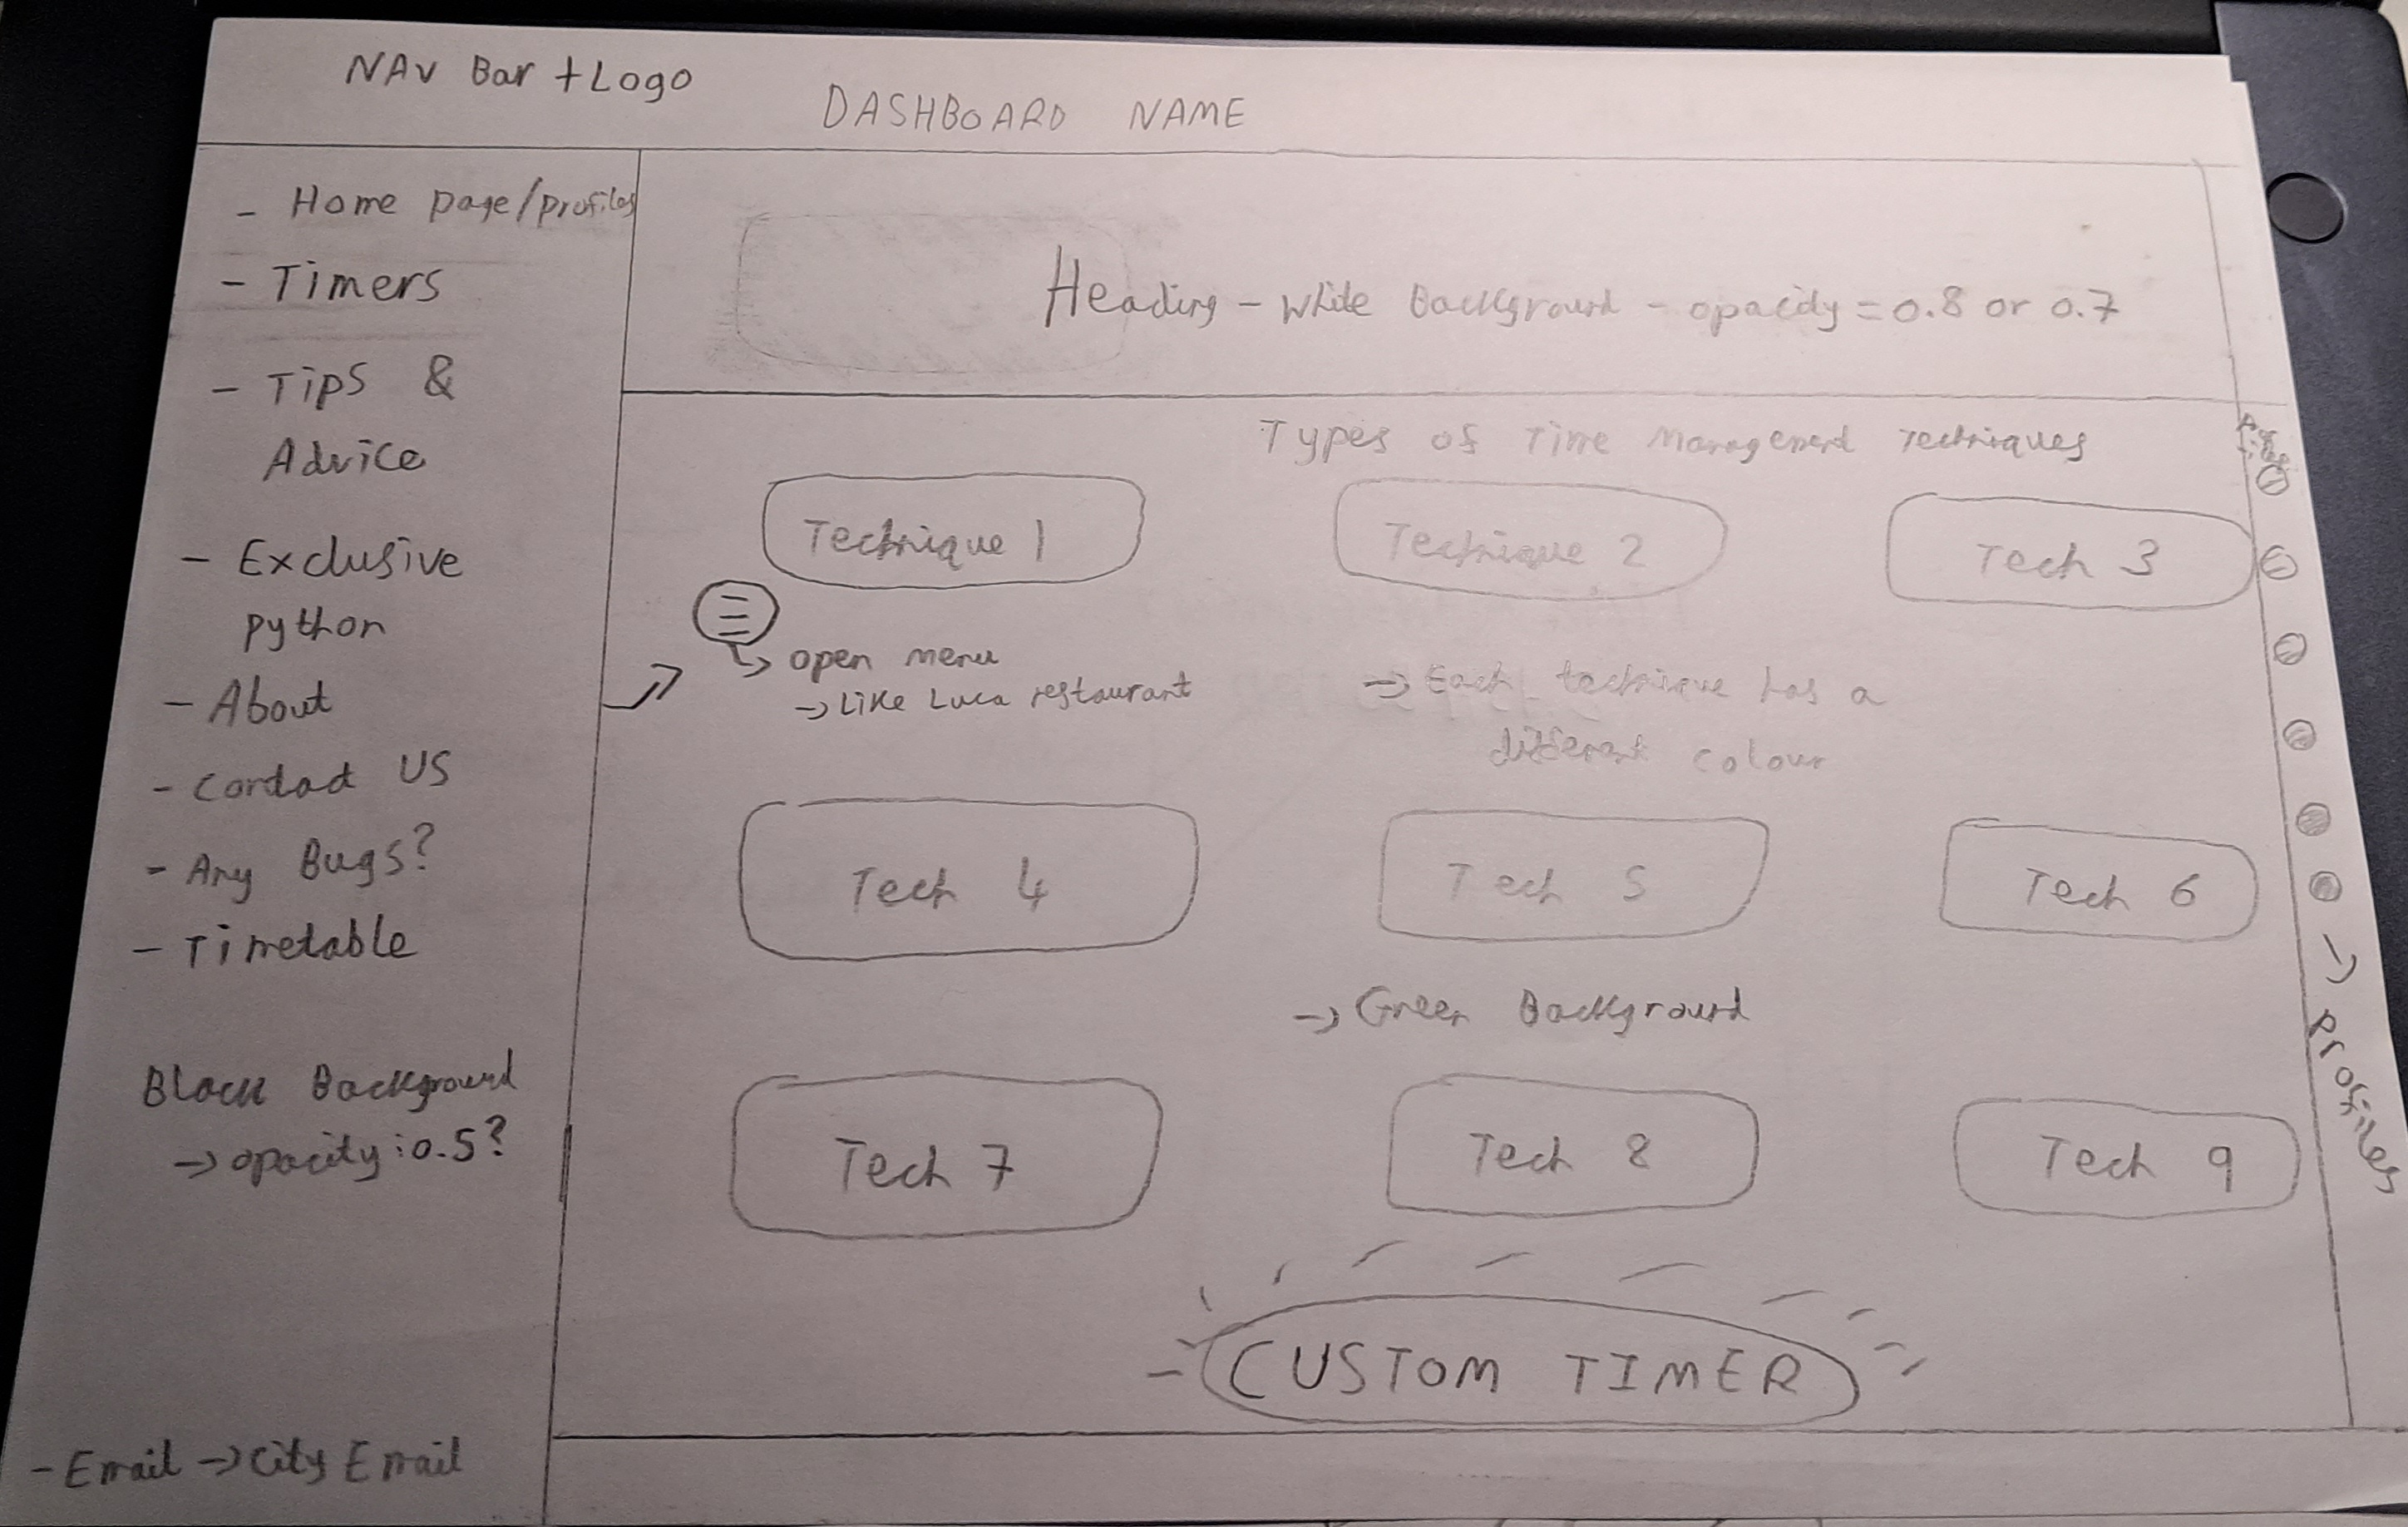 NAV Bar + Logo
DASHBOARD NAME
- Home page/profiles
- Timers
- Tips &
Advice
- Exclusive
python
- About
- Contact US
- Any Bugs?
- Timetable
Black Background
→ opacity : 0.5?
- Email → City Email
Heading - White Background - opacity = 0.8 or 0.7
Types of Time Management Techniques
Technique 1
Technique 2
Tech 3
→ open menu
→ Like Luca restaurant
→ Each technique has a
different colour
Tech 4
Tech 5
Tech 6
→ Green Background
Tech 7
Tech 8
Tech 9
CUSTOM TIMER
→ Profiles